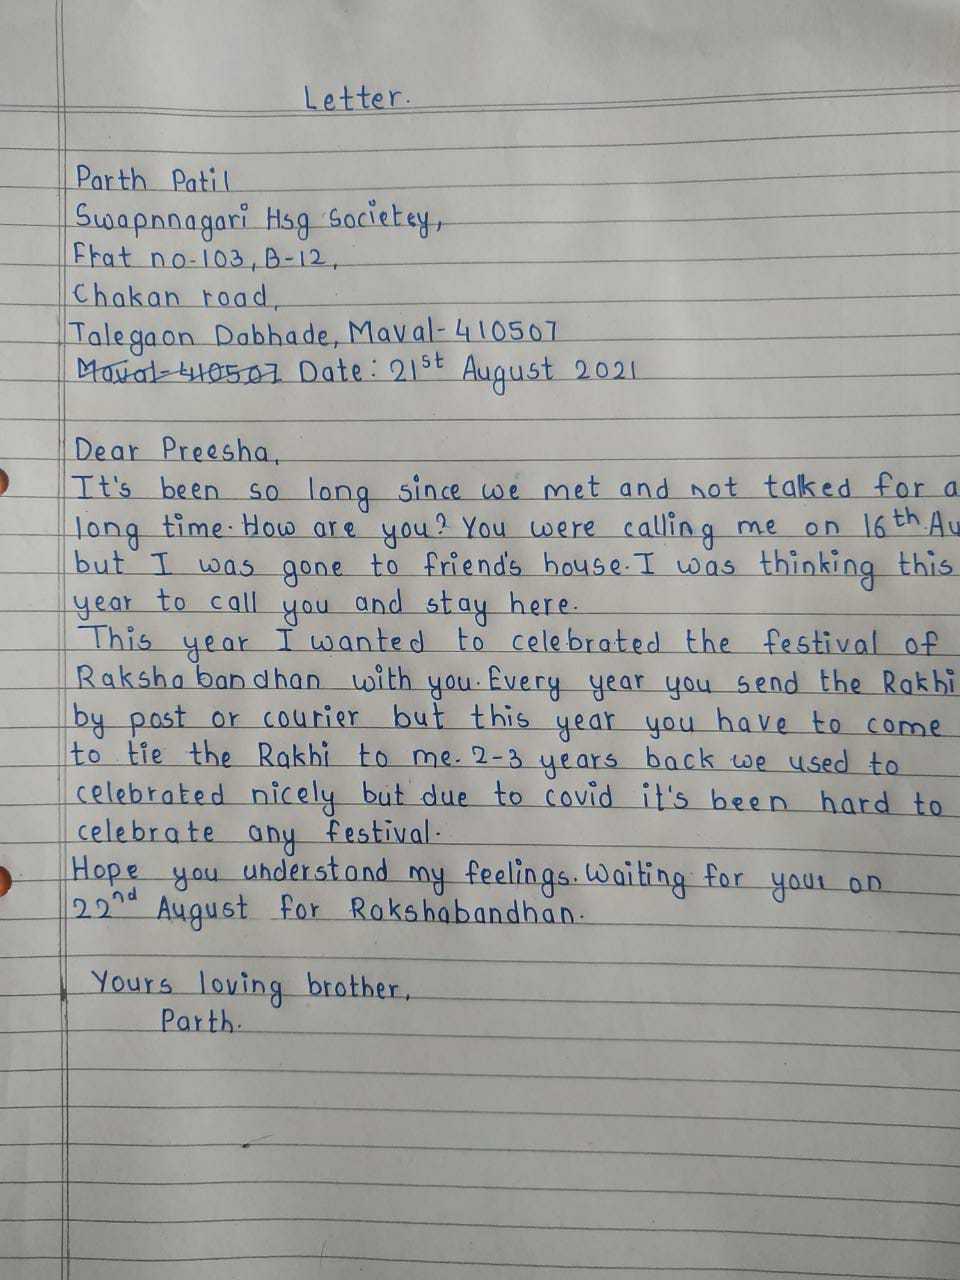 Letter.
Parth Patil
Swapnnagari Hsg Societey,
Flat no-103, B-12,
Chakan road,
Talegaon Dabhade, Maval-410507
Maval-410507 Date: 21st August 2021
Dear Preesha,
It's been so long since we met and not talked for a
long time. How are you? You were calling me on 16th Au
but I was gone to friend's house. I was thinking this
year to call you and stay here.
This year I wanted to celebrated the festival of
Raksha bandhan with you. Every year you send the Rakhi
by post or courier but this year you have to come
to tie the Rakhi to me. 2-3 years back we used to
celebrated nicely but due to covid it's been hard to
celebrate any festival.
Hope you understand my feelings. Waiting for your on
22nd August for Rakshabandhan.
Yours loving brother,
Parth.